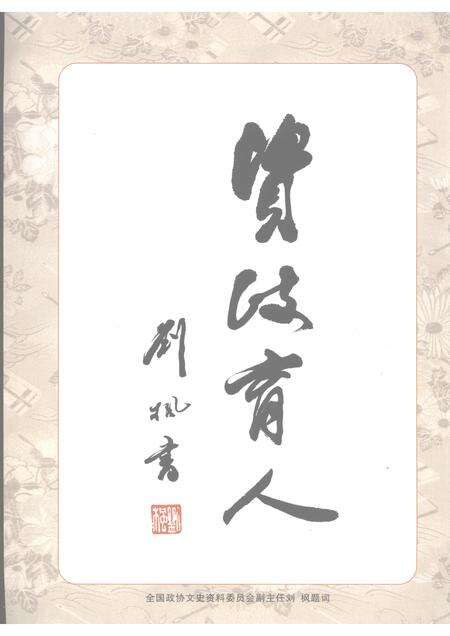 資政育人
劉楓書
全国政协文史资料委员会副主任刘 枫题词